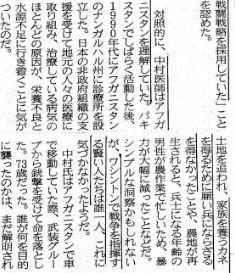 戦闘戦略を採用していた」こと
を認めた。
対照的に、中村医師はアフガ
ニスタンを理解していた。パキ
スタンでしばらく活動した後、
1990年代にアフガニスタン
のナンガルハル州に診療所を設
立した。日本の非政府組織の支
援を受けて地元の人々の医療に
取り組み、治療している病気の
ほとんどの原因が、栄養不良と
水源不足に行き着くことに気が
ついたのだ。
土地を追われ、家族を養うカネ
を得るために雇い兵になりさる
を得なかったことや、農地が再
生されると、兵士になる年齢の
男性が農作業で忙しいため、暴
力が大幅に減ったことなどだ。
シンプルな洞察かもしれない
が、ワシントンで戦争を指揮す
る賢い人たちは誰一人、これに
気がつかなかったようだ。
中村氏はアフガニスタンで車
で移動していた際、武装グルー
プから銃撃を受けて命を落とし
た。73歳だった。誰が何を目的
に襲ったのかは、まだ解明され